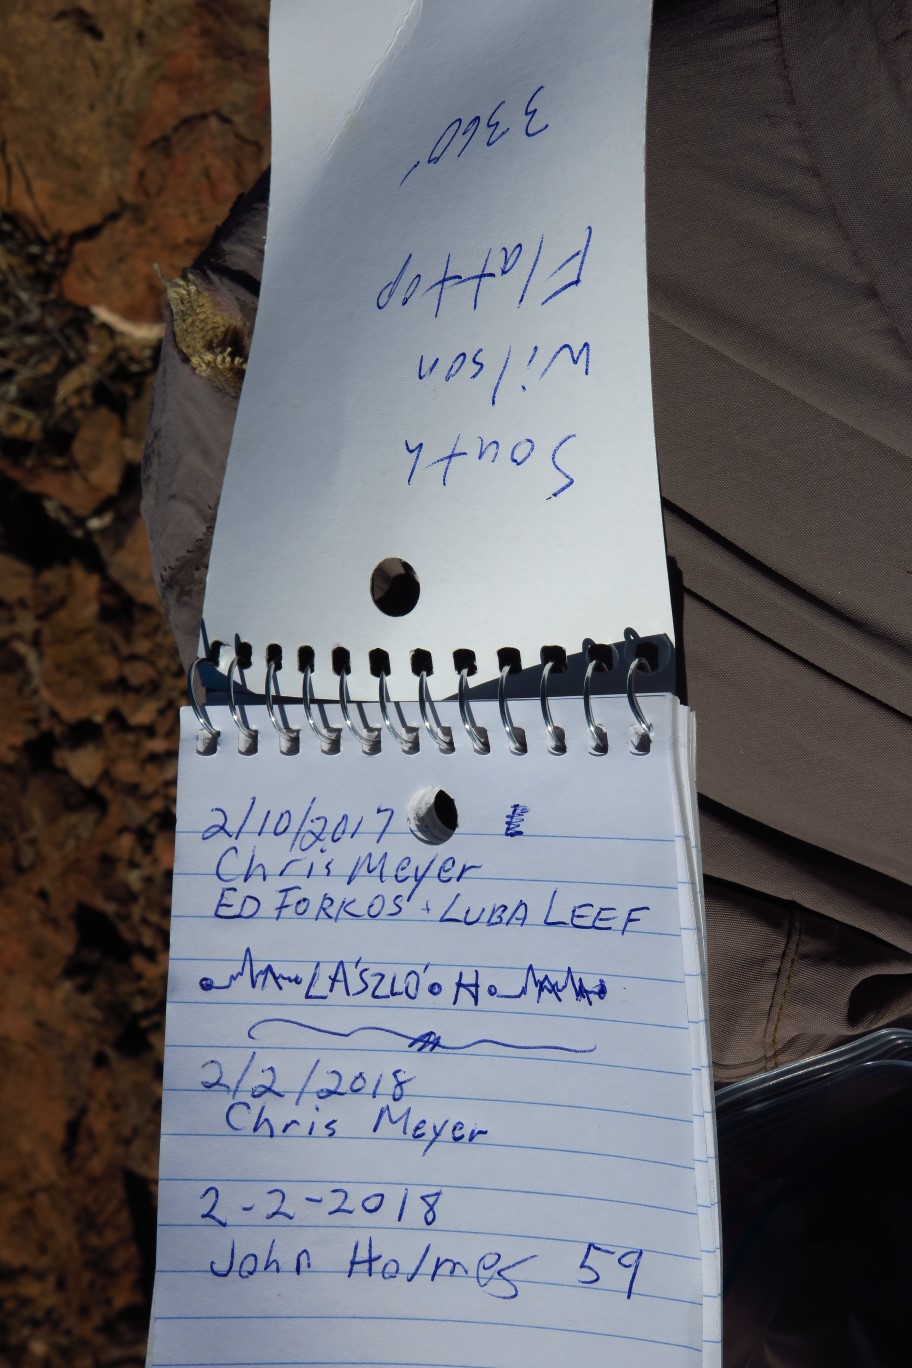 South
Wilson
Flattop
3360'
2/10/2017
Chris Meyer
ED FORKOS + LUBA LEEF
LÁSZLÓ H
2/2/2018
Chris Meyer
2-2-2018
John Holmes 59